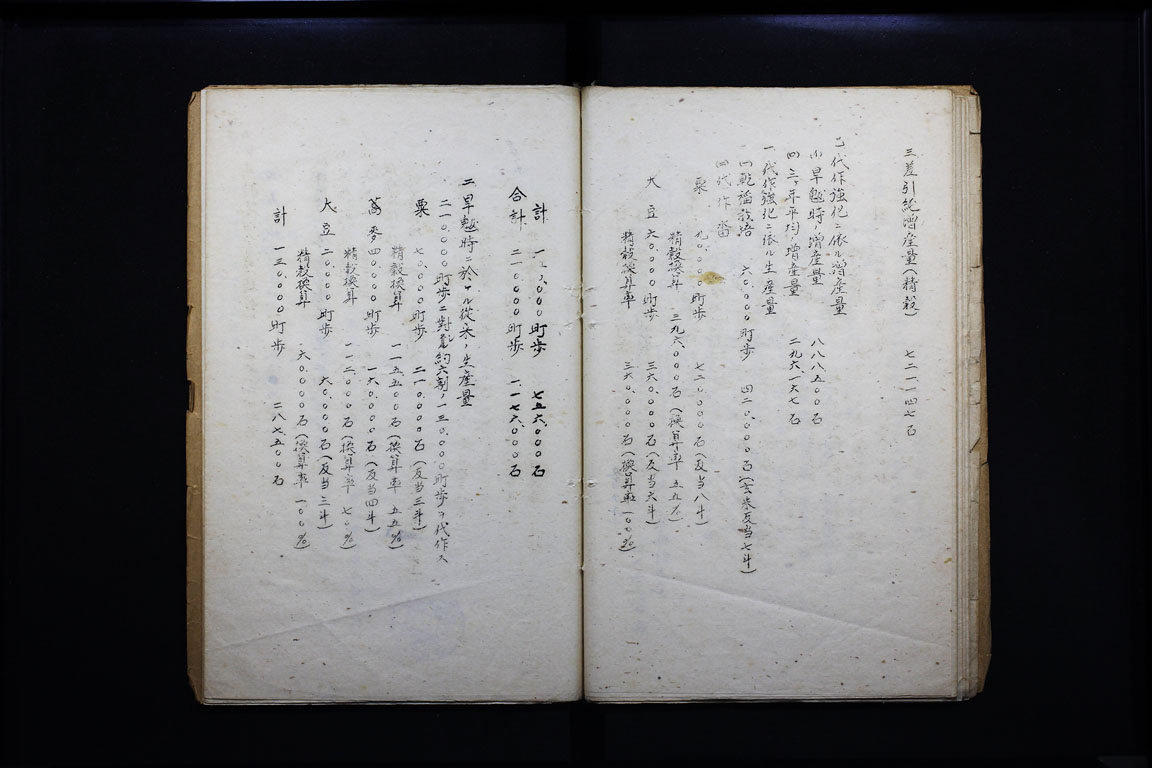 三差引総増産量(精穀) 七二一一四七石
乙、代作強化ニ依ル増産量
(イ)旱魃時ノ増産量 八八八五〇〇石
(ロ)三ヶ年平均ノ増産量 二九六一六七石
一代作強化ニ依ル生産量
(一)乾稲栽培 六〇、〇〇〇町歩 四二〇、〇〇〇石(玄米反当七斗)
(二)代作畓
粟 九〇、〇〇〇町歩 七二〇〇〇〇石(反当八斗)
精穀換算 三九六〇〇〇石(換算率五五%)
大豆 六〇、〇〇〇町歩 三六〇、〇〇〇石(反当六斗)
精穀換算率 三六〇、〇〇〇石(換算率一〇〇%)
計 一五〇、〇〇〇町歩 七五六、〇〇〇石
合計 二一〇、〇〇〇町歩 一、一七六、〇〇〇石
二旱魃時ニ於ケル従来ノ生産量
二一〇、〇〇〇町歩ニ対シ約六割ノ一三〇、〇〇〇町歩ヲ代作ス
粟 七〇、〇〇〇町歩 二一〇、〇〇〇石(反当三斗)
精穀換算 一一五五〇〇石(換算率五五%)
蕎麦 四〇、〇〇〇町歩 一六〇、〇〇〇石(反当四斗)
精穀換算 一一二〇〇〇石(換算率七〇%)
大豆 二〇、〇〇〇町歩 六〇、〇〇〇石(反当三斗)
精穀換算 六〇、〇〇〇石(換算率一〇〇%)
計 一三〇、〇〇〇町歩 二八七、五〇〇石